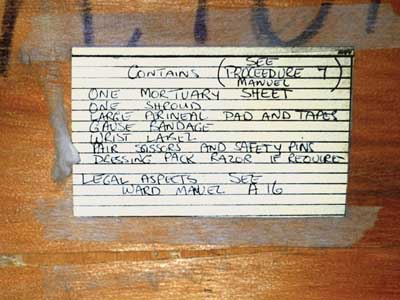 SEE
CONTAINS (PROCEEDURE 7)
MANUEL
ONE MORTUARY SHEET
ONE SHROUD
LARGE PIRINEAL PAD AND TAPES
GAUSE BANDAGE
WRIST LABEL
PAIR SCISSORS AND SAFETY PINS
DRESSING PACK RAZOR IF REQUIRE
LEGAL ASPECTS SEE
WARD MANUEL A 16